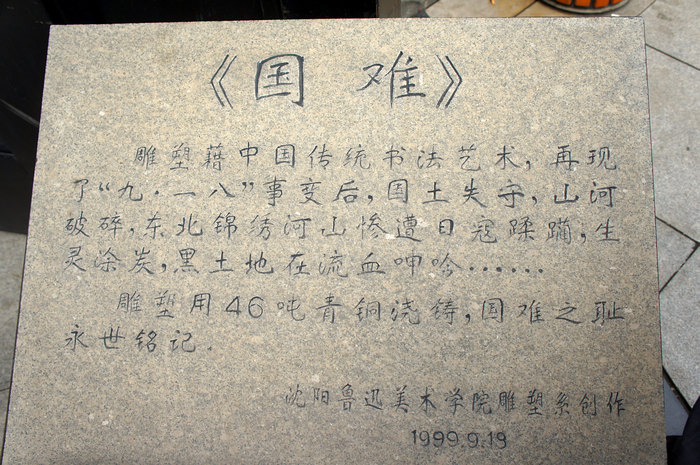 《国难》
雕塑藉中国传统书法艺术,再现
了“九·一八”事变后,国土失守,山河
破碎,东北锦绣河山惨遭日寇蹂躏,生
灵涂炭,黑土地在流血呻吟……
雕塑用46吨青铜浇铸,国难之耻
永世铭记.
沈阳鲁迅美术学院雕塑系创作
1999.9.19